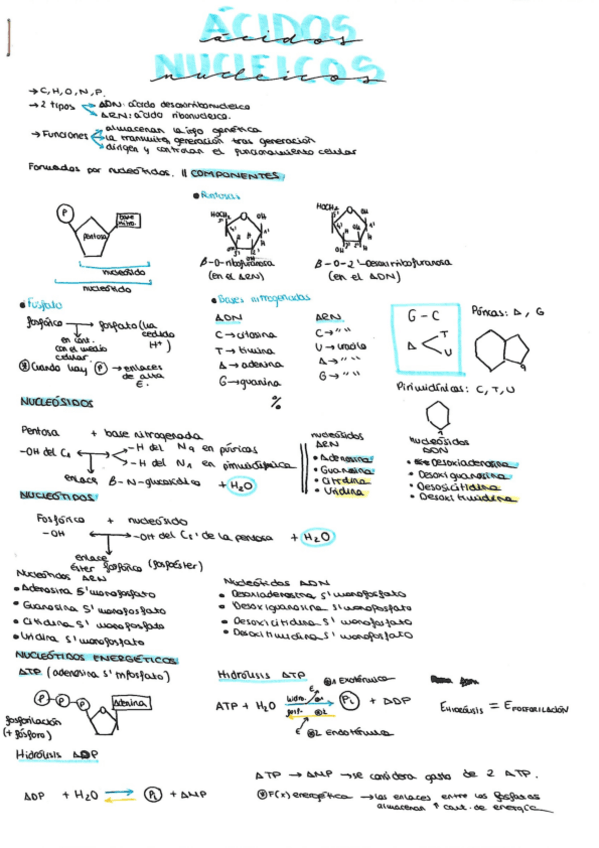 ÁCIDOS
ácidos
NUCLEICOS
nucleicos
→ C, H, O, N, P.
→ 2 tipos
ADN: ácido desoxirribonucleico
ARN: ácido ribonucleico.
→ Funciones
almacenan la info genética
la transmiten generación tras generación
dirigen y controlan el funcionamiento celular
Formados por nucleótidos. || COMPONENTES
P
pentosa
base nitro.
nucleósido
nucleótido
• Pentosas
HOCH₂ O OH
β-D-ribofuranosa
(en el ARN)
HOCH₂ O OH
β-D-2'-Desoxirribofuranosa
(en el ADN)
• Fosfato
fosfórico → fosfato (ha cedido H⁺)
en cont. con el medio celular.
Cuando hay P → enlaces de alta E.
• Bases nitrogenadas
ADN
C → citosina
T → timina
A → adenina
G → guanina
ARN
C → " "
U → uracilo
A → " "
G → " "
G - C
A < T U
Púricas: A, G
Pirimidínicas: C, T, U
%
NUCLEÓSIDOS
Pentosa + base nitrogenada
-OH del C₁
-H del N₉ en púricas
-H del N₁ en pirimidínica
enlace β-N-glucosídico + H₂O
nucleósidos ARN
• Adenosina
• Guanosina
• Citidina
• Uridina
nucleósidos ADN
• Desoxiadenosina
• Desoxiguanosina
• Desoxicitidina
• Desoxitimidina
NUCLEÓTIDOS
Fosfórico + nucleósido
-OH
-OH del C5' de la pentosa + H₂O
enlace éster fosfórico (fosfoéster)
Nucleótidos ARN
• Adenosina 5' monofosfato
• Guanosina 5' monofosfato
• Citidina 5' monofosfato
• Uridina 5' monofosfato
Nucleótidos ADN
• Desoxiadenosina 5' monofosfato
• Desoxiguanosina 5' monofosfato
• Desoxicitidina 5' monofosfato
• Desoxitimidina 5' monofosfato
NUCLEÓTIDOS ENERGÉTICOS
ATP (adenosina 5' trifosfato)
P P P O Adenina
fosforilación
(+ fósforo)
Hidrólisis ATP
1 Exotérmica
ATP + H₂O
E
hidro. 1
fosf. 2
Pi + ADP
E 2 Endotérmica
E HIDRÓLISIS = E FOSFORILACIÓN
Hidrólisis ADP
ADP + H₂O Pi + AMP
ATP → AMP → se considera gasto de 2 ATP.
F(x) energética → los enlaces entre los fosfatos
almacenan ↑ cant. de energía